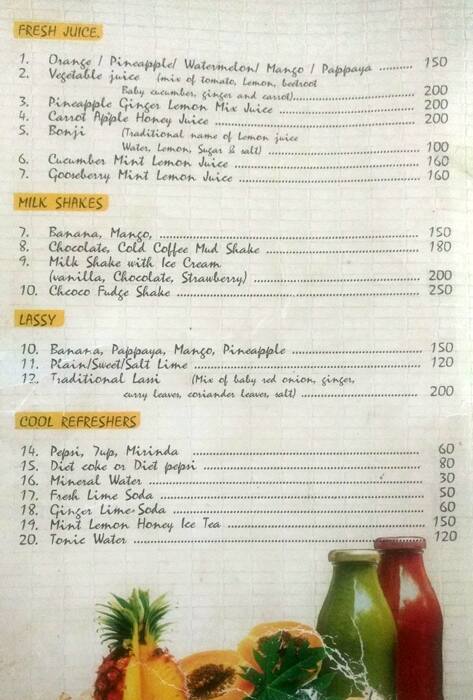 FRESH JUICE.
1. Orange / Pineapple/ Watermelon/ Mango / Pappaya ........ 150
2. Vegetable juice (mix of tomato, Lemon, beetroot
Baby cucumber, ginger and carrot)........ 200
3. Pineapple Ginger Lemon Mix Juice ........ 200
4. Carrot Apple Honey Juice ........ 200
5. Bonji (Traditional name of Lemon juice
Water, Lemon, Sugar & salt) ........ 100
6. Cucumber Mint Lemon Juice ........ 160
7. Gooseberry Mint Lemon Juice ........ 160
MILK SHAKES
7. Banana, Mango, ........ 150
8. Chocolate, Cold Coffee Mud Shake ........ 180
9. Milk Shake with Ice Cream
(vanilla, Chocolate, Strawberry) ........ 200
10. Chcoco Fudge Shake ........ 250
LASSY
10. Banana, Pappaya, Mango, Pineapple ........ 150
11. Plain/Sweet/Salt Lime ........ 120
12. Traditional Lassi (Mix of baby red onion, ginger,
curry leaves, coriander leaves, salt) ........ 200
COOL REFRESHERS
14. Pepsi, 7up, Mirinda ........ 60
15. Diet coke or Diet pepsi ........ 80
16. Mineral Water ........ 30
17. Fresh Lime Soda ........ 50
18. Ginger Lime Soda ........ 60
19. Mint Lemon Honey Ice Tea ........ 150
20. Tonic Water ........ 120